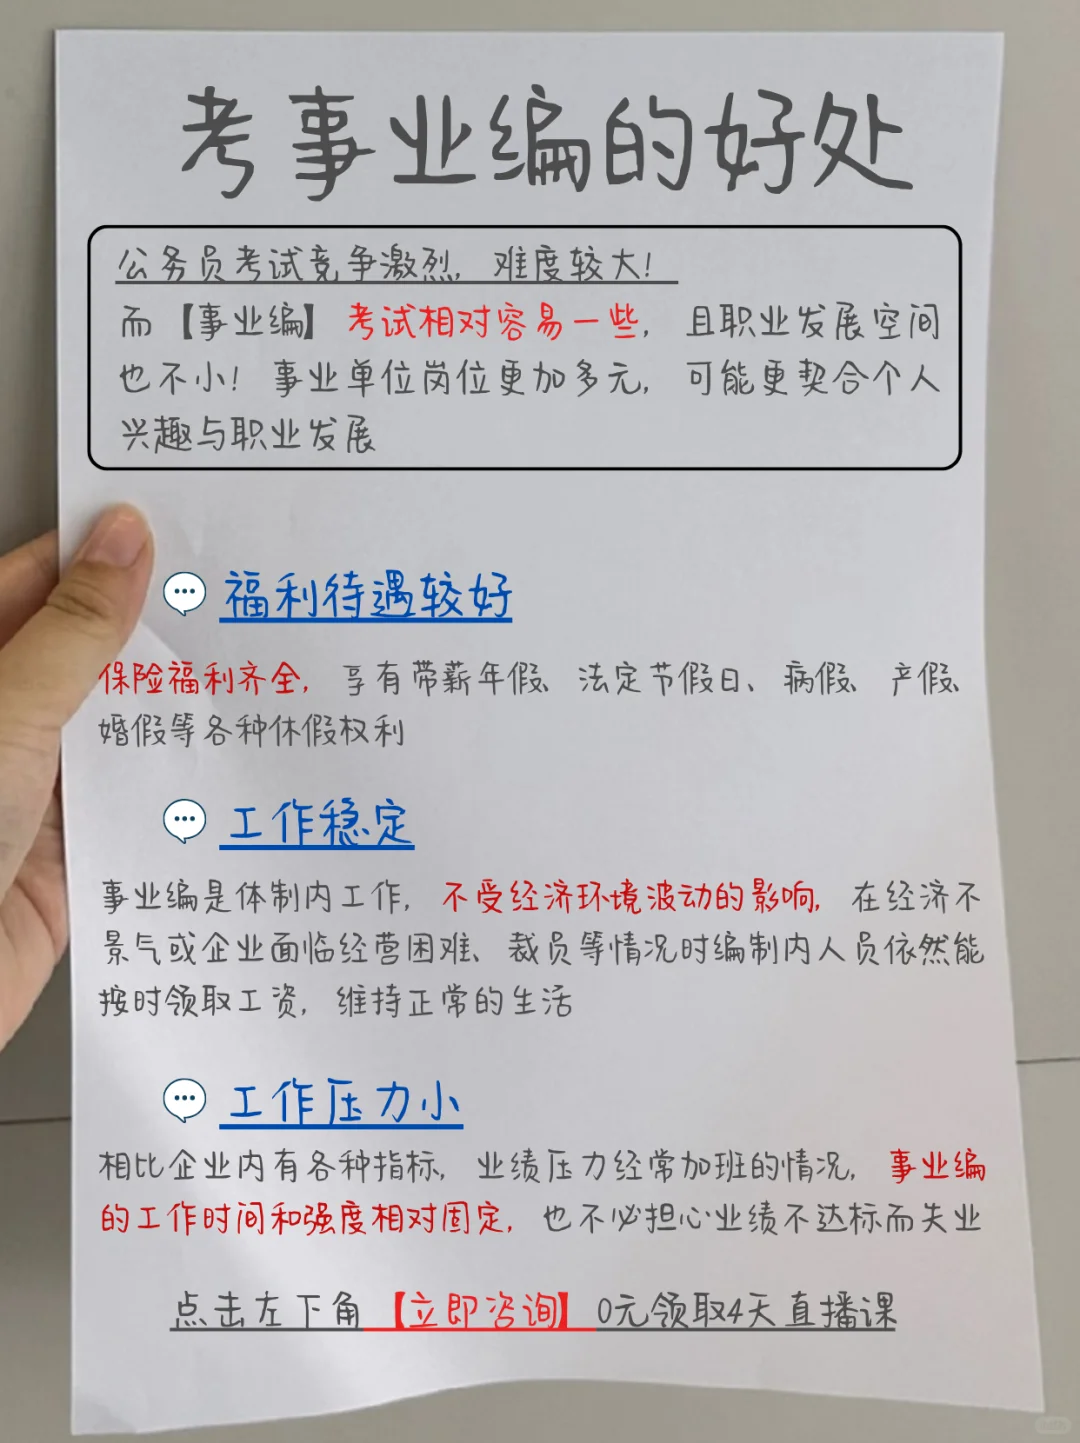 考事业编的好处
公务员考试竞争激烈，难度较大！
而【事业编】考试相对容易一些，且职业发展空间
也不小！事业单位岗位更加多元，可能更契合个人
兴趣与职业发展
福利待遇较好
保险福利齐全，享有带薪年假、法定节假日、病假、产假、
婚假等各种休假权利
工作稳定
事业编是体制内工作，不受经济环境波动的影响，在经济不
景气或企业面临经营困难、裁员等情况时编制内人员依然能
按时领取工资，维持正常的生活
工作压力小
相比企业内有各种指标，业绩压力经常加班的情况，事业编
的工作时间和强度相对固定，也不必担心业绩不达标而失业
点击左下角【立即咨询】0元领取4天直播课